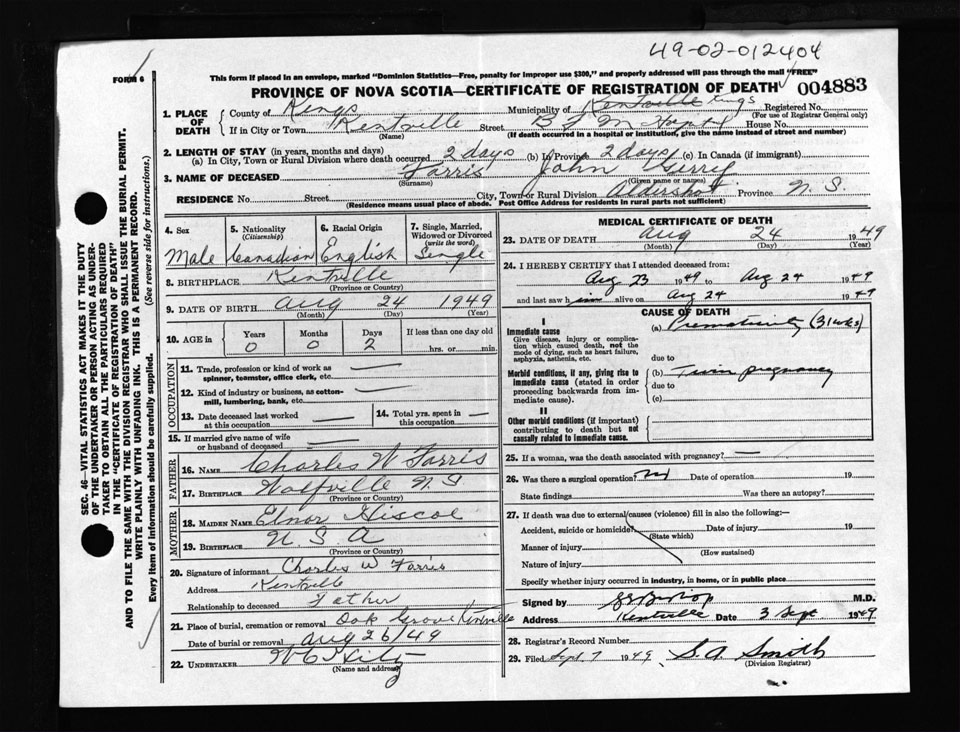 49-02-012404
FORM 6
This form if placed in an envelope, marked "Dominion Statistics—Free, penalty for improper use $300," and properly addressed will pass through the mail "FREE"
PROVINCE OF NOVA SCOTIA—CERTIFICATE OF REGISTRATION OF DEATH 004883
1. PLACE OF DEATH
County of Kings Municipality of Kentville Kings Registered No.
(For use of Registrar General only)
If in City or Town Kentville Street B F M Hospital House No.
(Name) (If death occurred in a hospital or institution, give the name instead of street and number)
2. LENGTH OF STAY (in years, months and days)
(a) In City, Town or Rural Division where death occurred 2 days (b) In Province 2 days (c) In Canada (if immigrant)
3. NAME OF DECEASED Farris John
(Surname) (Given name or names)
RESIDENCE No. Street City, Town or Rural Division Aldershot Province N. S.
(Residence means usual place of abode. Post Office Address for residents in rural parts not sufficient)
4. Sex
Male
5. Nationality
(Citizenship)
Canadian
6. Racial Origin
English
7. Single, Married, Widowed or Divorced
(write the word)
Single
8. BIRTHPLACE Kentville
(Province or Country)
9. DATE OF BIRTH Aug 24 1949
(Month) (Day) (Year)
10. AGE in
Years Months Days If less than one day old
0 0 2 hrs. or min.
OCCUPATION
11. Trade, profession or kind of work as spinner, teamster, office clerk, etc. —
12. Kind of industry or business, as cotton-mill, lumbering, bank, etc. —
13. Date deceased last worked at this occupation —
14. Total yrs. spent in this occupation —
15. If married give name of wife or husband of deceased —
FATHER
16. NAME Charles W Farris
17. BIRTHPLACE Wolfville N. S.
(Province or Country)
MOTHER
18. MAIDEN NAME Elnor Hiscoe
19. BIRTHPLACE U. S. A
(Province or Country)
20. Signature of informant Charles W Farris
Address Kentville
Relationship to deceased Father
21. Place of burial, cremation or removal Oak Grove Kentville
Date of burial or removal Aug 26/49
22. UNDERTAKER
(Name and address)
MEDICAL CERTIFICATE OF DEATH
23. DATE OF DEATH Aug 24 1949
(Month) (Day) (Year)
24. I HEREBY CERTIFY that I attended deceased from:
Aug 23 1949 to Aug 24 1949
and last saw him alive on Aug 24 1949
CAUSE OF DEATH
I
Immediate cause
Give disease, injury or complication which caused death, not the mode of dying, such as heart failure, asphyxia, asthenia, etc.
(a) Prematurity (31 wks)
due to
Morbid conditions, if any, giving rise to immediate cause (stated in order proceeding backwards from immediate cause).
(b) Twin pregnancy
due to
(c)
II
Other morbid conditions (if important) contributing to death but not causally related to immediate cause.
25. If a woman, was the death associated with pregnancy? —
26. Was there a surgical operation? no Date of operation 19
State findings Was there an autopsy?
27. If death was due to external causes (violence) fill in also the following:—
Accident, suicide or homicide? Date of injury 19
(State which)
Manner of injury
(How sustained)
Nature of injury
Specify whether injury occurred in industry, in home, or in public place
Signed by M.D.
Address Kentville Date 3 Sept 1949
28. Registrar's Record Number
29. Filed Sept 7 1949 S. A. Smith
(Division Registrar)
SEC. 46—VITAL STATISTICS ACT MAKES IT THE DUTY
OF THE UNDERTAKER OR PERSON ACTING AS UNDER-
TAKER TO OBTAIN ALL THE PARTICULARS REQUIRED
IN THE "CERTIFICATE OF REGISTRATION OF DEATH"
AND TO FILE THE SAME WITH THE DIVISION REGISTRAR WHO SHALL ISSUE THE BURIAL PERMIT.
WRITE PLAINLY WITH UNFADING INK. THIS IS A PERMANENT RECORD.
Every item of information should be carefully supplied. (See reverse side for instructions.)